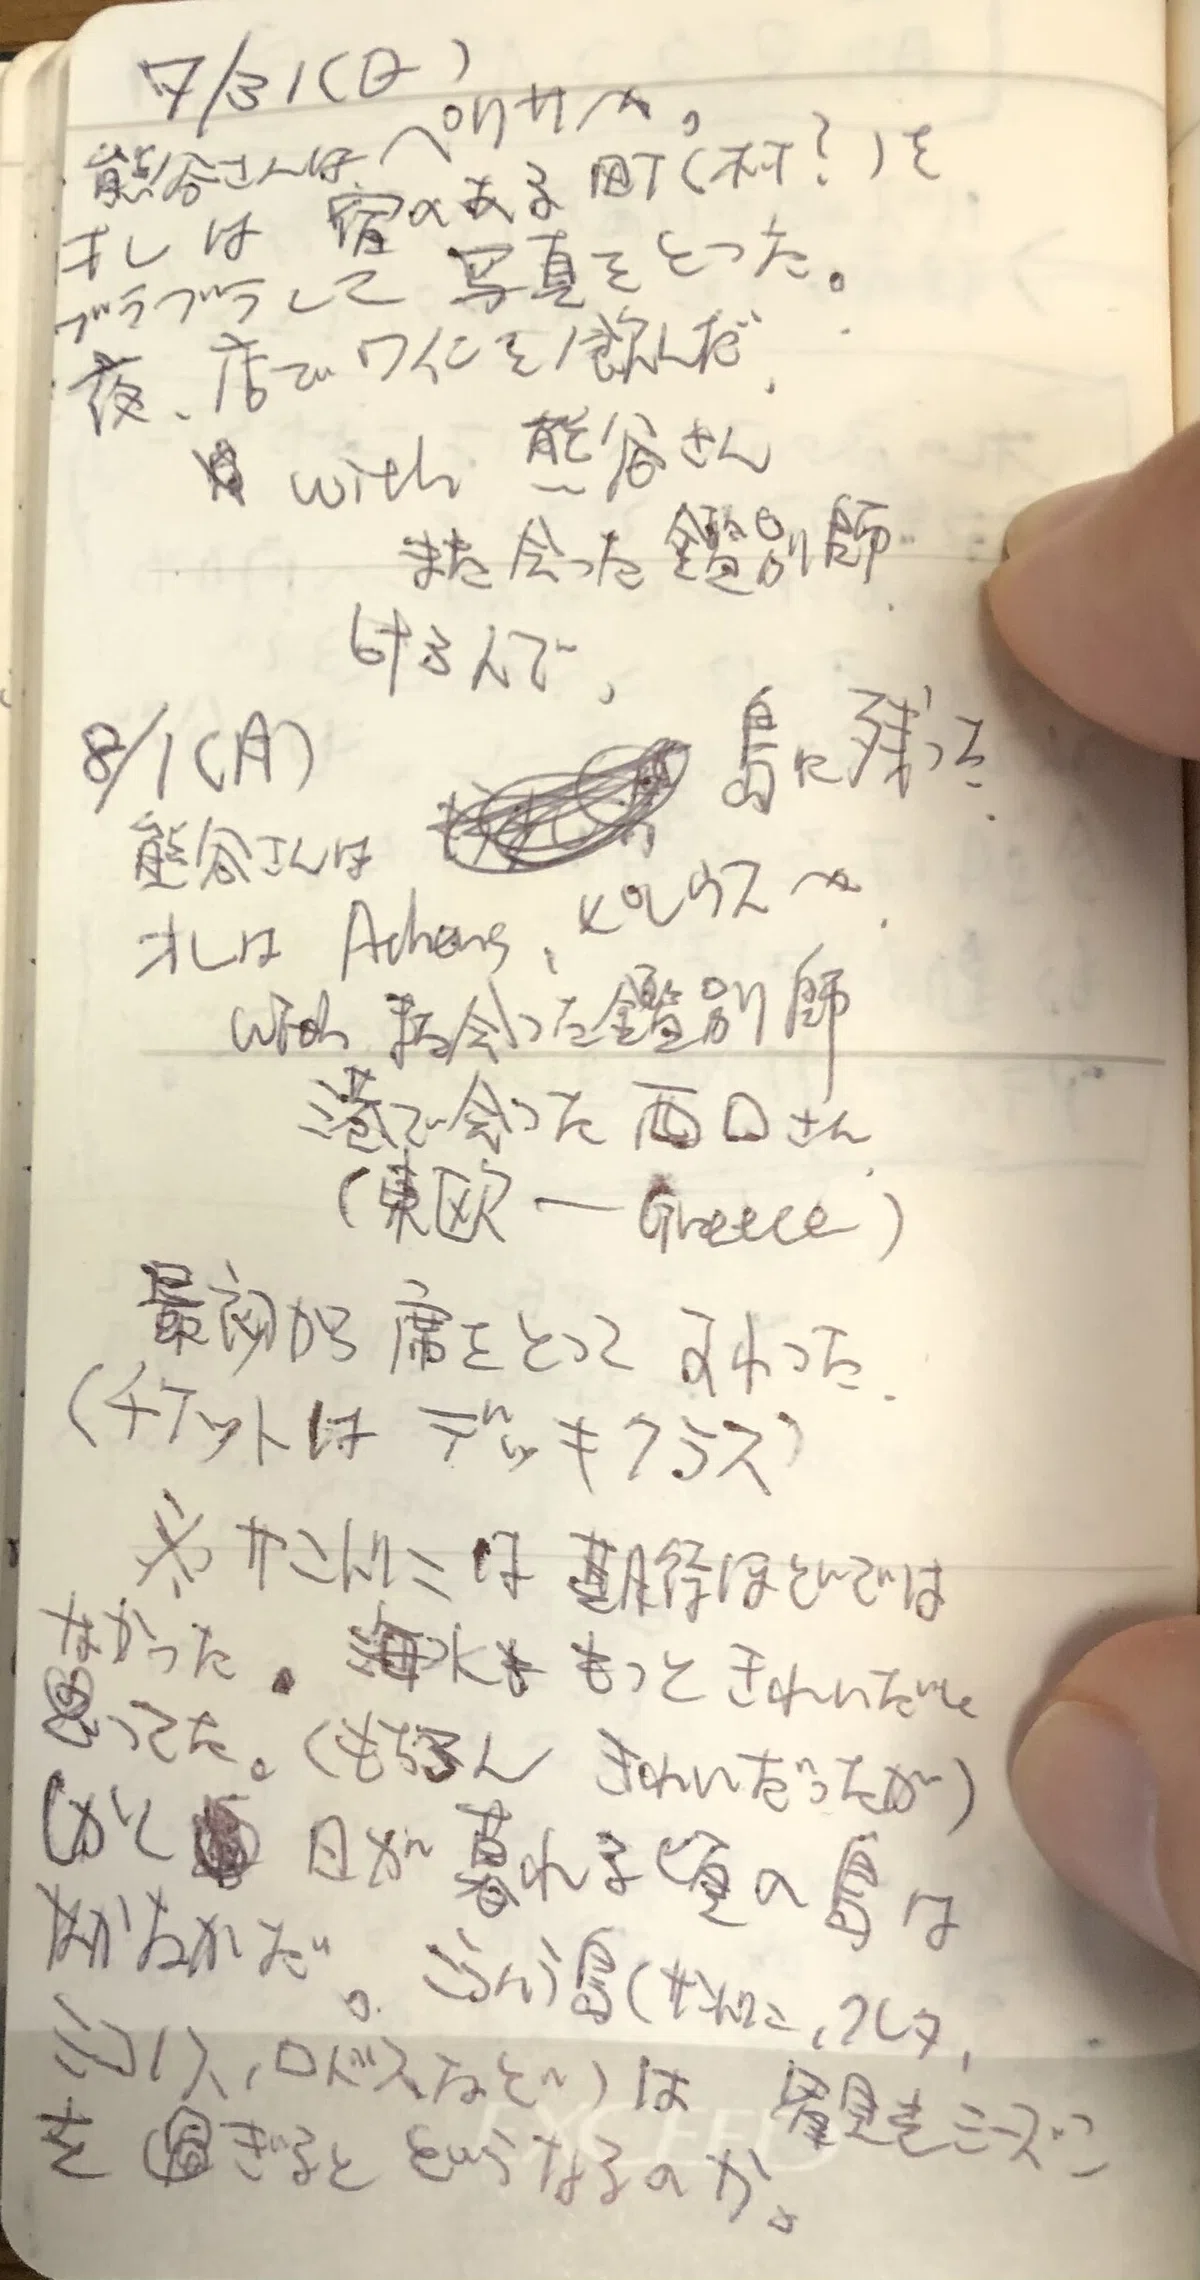 7/31(日)
熊谷さんは、ペリサへ。
オレは 宿のある町(村?)を
ブラブラして 写真をとった。
夜、店でワインを飲んだ、
with 熊谷さん
また会った鑑別師
8/1(月)
熊谷さんは 島に残って
オレは Athens、ピレウスへ、
with また会った鑑別師
港で会った西口さん、
(東欧 ー Greece)
最初から席をとって すわった、
(チケットは デッキクラス)
※ サントリーニは 期待ほどでは
なかった。海水も もっときれいだと
思ってた。(もちろん きれいだったが)
しかし 日が暮れる頃の島は
なかなかだ。こういう島(サントリーニ、クレタ、
ミコノス、ロドスなど)は 観光シーズン
を過ぎると どうなるのか。
EXCEED